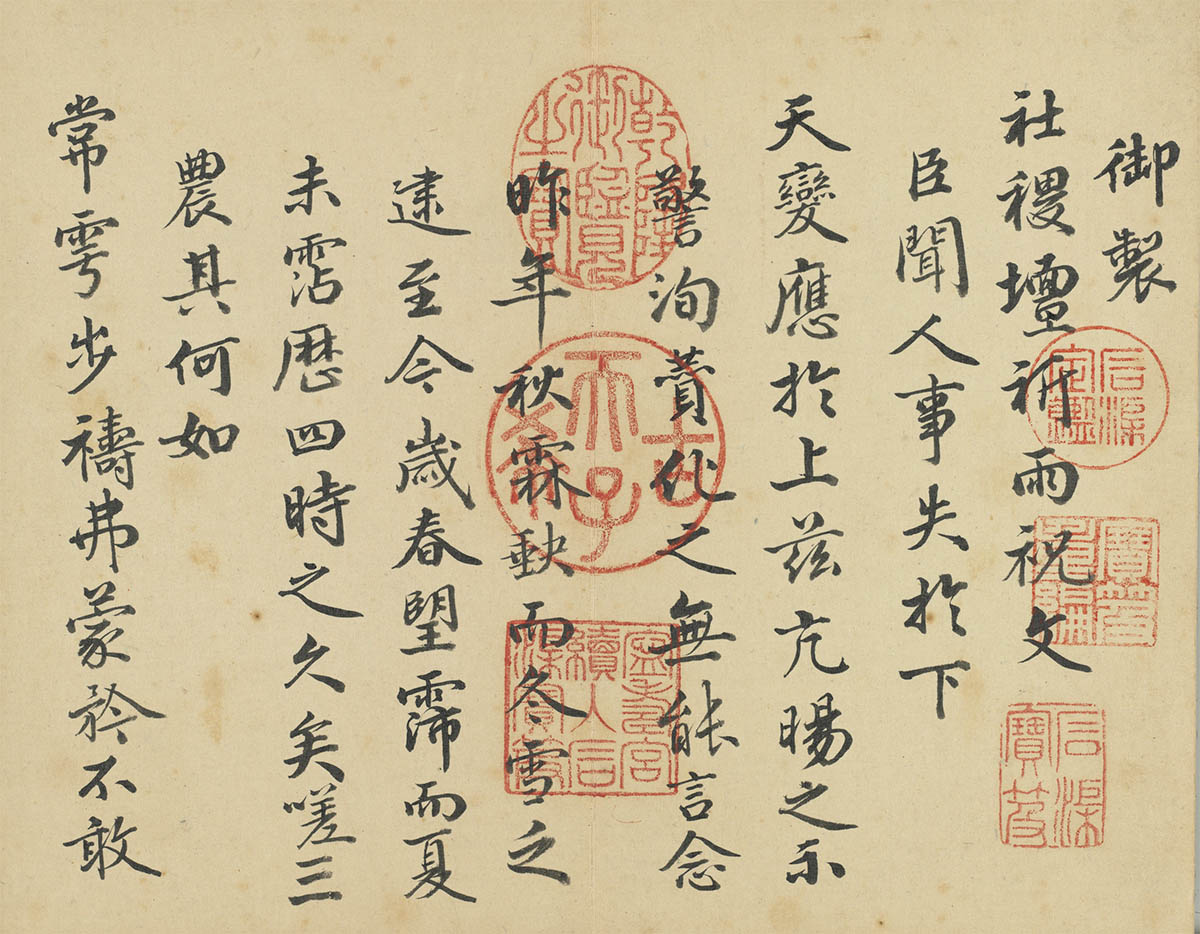 御製
社稷壇祈雨祝文
臣聞人事失於下
天變應於上茲亢暘之示
警洵賛化之無能言念
昨年秋霖缺而冬雪乏
逮至今歲春望霈而夏
未霑歷四時之久矣嗟三
農其何如
常雩步禱弗蒙矜不敢
石渠定鑑
寶笈重編
石渠寶笈
乾隆御覽之寶
古希天子
寧壽宮續入石渠寶笈